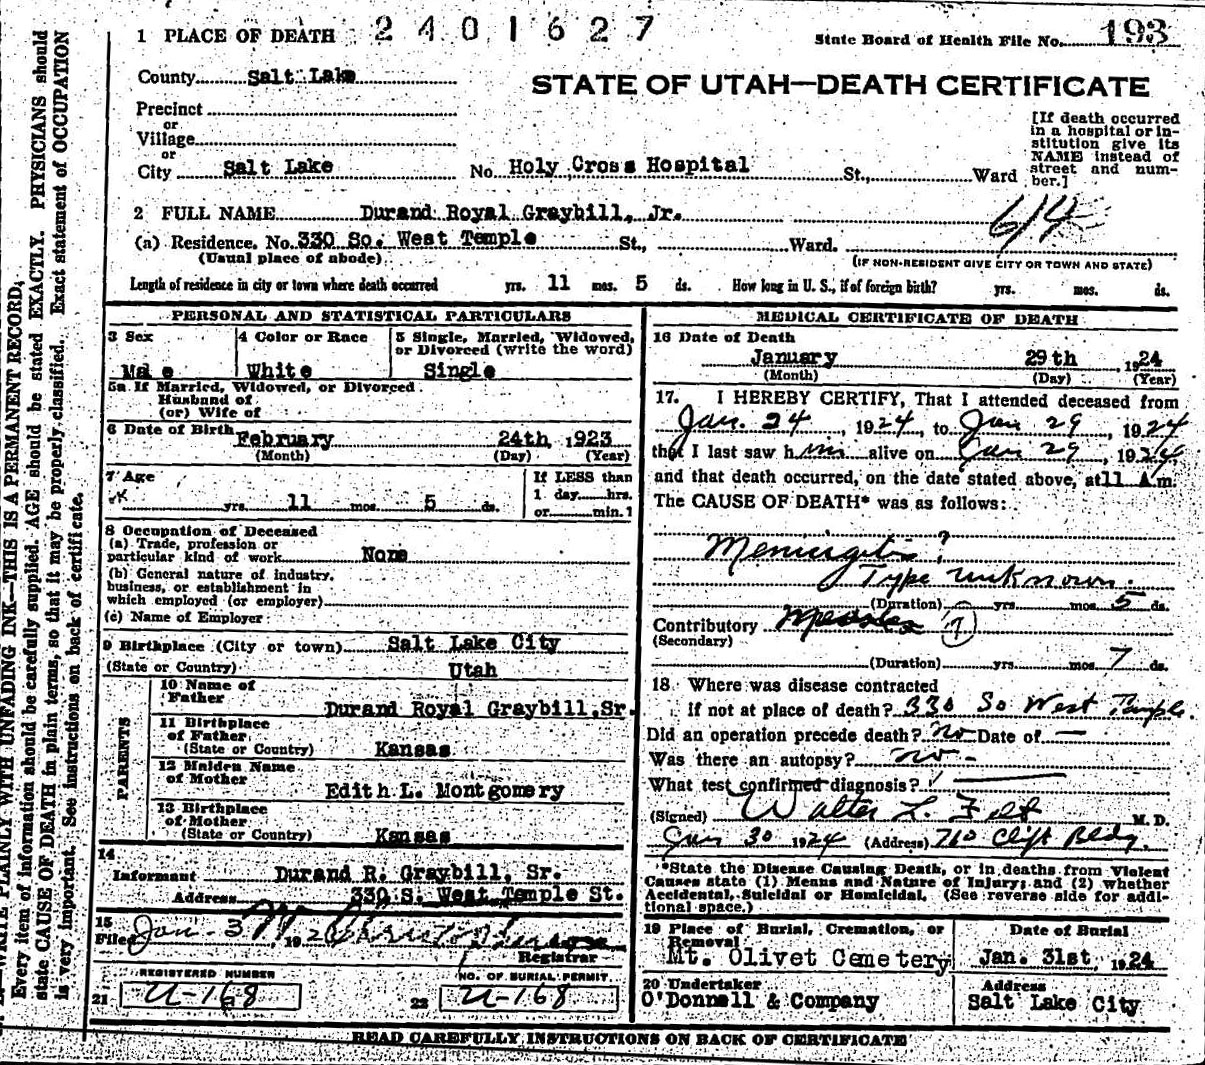 1 PLACE OF DEATH 2401627
State Board of Health File No. 193
County Salt Lake
STATE OF UTAH—DEATH CERTIFICATE
Precinct
or
Village
or
City Salt Lake No. Holy Cross Hospital St., Ward
[If death occurred
in a hospital or in-
stitution give its
NAME instead of
street and num-
ber.]
2 FULL NAME Durand Royal Graybill, Jr.
614
(a) Residence. No. 330 So. West Temple St., Ward.
(Usual place of abode) (IF NON-RESIDENT GIVE CITY OR TOWN AND STATE)
Length of residence in city or town where death occurred yrs. 11 mos. 5 ds. How long in U. S., if of foreign birth? yrs. mos. ds.
PERSONAL AND STATISTICAL PARTICULARS
3 Sex 4 Color or Race 5 Single, Married, Widowed,
or Divorced (write the word)
Male White Single
5a If Married, Widowed, or Divorced
Husband of
(or) Wife of
6 Date of Birth February 24th, 1923
(Month) (Day) (Year)
7 Age If LESS than
1 day hrs.
yrs. 11 mos. 5 ds. or min.?
8 Occupation of Deceased
(a) Trade, profession or
particular kind of work None
(b) General nature of industry,
business, or establishment in
which employed (or employer)
(c) Name of Employer
9 Birthplace (City or town) Salt Lake City
(State or Country) Utah
PARENTS
10 Name of
Father Durand Royal Graybill, Sr.
11 Birthplace
of Father
(State or Country) Kansas
12 Maiden Name
of Mother Edith L. Montgomery
13 Birthplace
of Mother
(State or Country) Kansas
14
Informant Durand R. Graybill, Sr.
Address 330 S. West Temple St.
15
Filed Jan. 192
Registrar
REGISTERED NUMBER NO. OF BURIAL PERMIT
21 U-168 22 U-168
MEDICAL CERTIFICATE OF DEATH
16 Date of Death
January 29th, 1924
(Month) (Day) (Year)
17. I HEREBY CERTIFY, That I attended deceased from
Jan. 24, 1924, to Jan 29, 1924
that I last saw him alive on Jan 29, 1924
and that death occurred, on the date stated above, at 11 A m.
The CAUSE OF DEATH* was as follows:
Meningitis?
Type unknown.
(Duration) yrs. mos. 5 ds.
Contributory Measles (?)
(Secondary)
(Duration) yrs. mos. 7 ds.
18 Where was disease contracted
If not at place of death? 330 So West Temple.
Did an operation precede death? no Date of —
Was there an autopsy? no -
What test confirmed diagnosis?
(Signed) Walter L. Felt M. D.
Jan 30 1924 (Address) 710 Clift Bldg.
*State the Disease Causing Death, or in deaths from Violent
Causes state (1) Means and Nature of Injury; and (2) whether
Accidental, Suicidal or Homicidal. (See reverse side for addi-
tional space.)
19 Place of Burial, Cremation, or
Removal Date of Burial
Mt. Olivet Cemetery Jan. 31st, 1924
20 Undertaker Address
O'Donnell & Company Salt Lake City
READ CAREFULLY INSTRUCTIONS ON BACK OF CERTIFICATE
WRITE PLAINLY WITH UNFADING INK—THIS IS A PERMANENT RECORD.
Every item of information should be carefully supplied. AGE should be stated EXACTLY. PHYSICIANS should
state CAUSE OF DEATH in plain terms, so that it may be properly classified. Exact statement of OCCUPATION
is very important. See instructions on back of certificate.